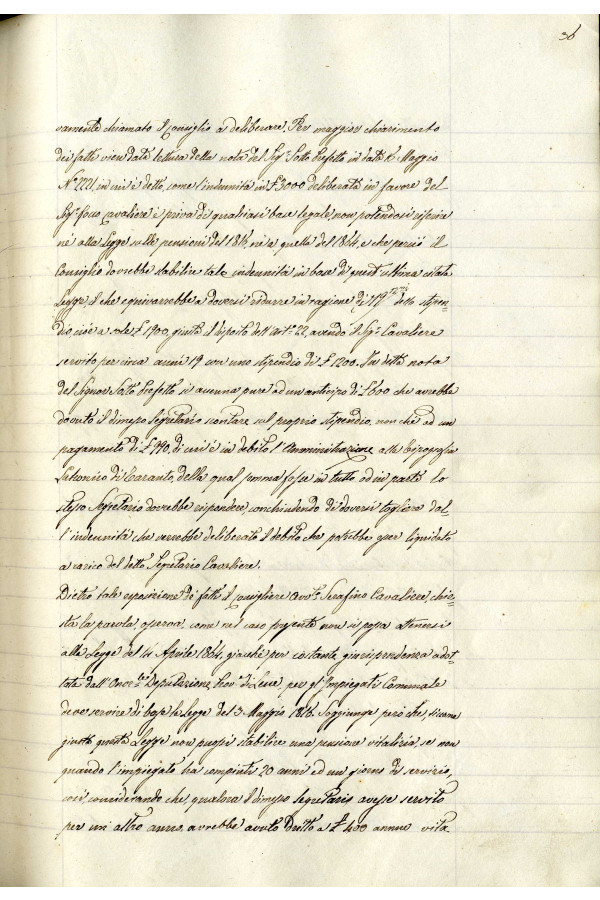 36
vamente chiamato il Consiglio a deliberare. Per maggior chiarimento
dei fatti vien data lettura della nota del Sigr Sotto Prefetto in data 6 Maggio
No 2221, in cui è detto, come l'indennità in £ 3000 deliberata in favore del
Sigr Cavaliere è priva di qualsiasi base legale, non potendosi riferire
nè alla Legge sulle pensioni del 1816, nè a quella del 1864, e che perciò il
Consiglio dovrebbe stabilire tale indennità in base di quest'ultima citata
Legge, il che equivarrebbe a doversi ridurre in ragione di 19/12mi dello stipen-
dio, cioè a sole £ 1900, giusta il disposto dell'art. 22, avendo il Sigr Cavaliere
servito per circa anni 19 con uno stipendio di £ 1200. In detta nota
del Signor Sotto Prefetto si accenna pure ad un anticipo di £ 600 che avrebbe
dovuto il dimesso Segretario scontare sul proprio stipendio, non che ad un
pagamento di £ 990, di cui è in debito l'Amministrazione alla Tipografia
di Taranto, della qual somma fosse in tutto od in parte lo
stesso Segretario dovrebbe rispondere, conchiudendo di doversi togliere dal-
l'indennità che verrebbe deliberata il debito che potrebbe esser liquidato
a carico del detto Segretario Cavaliere.
Dietro tale esposizione di fatti il Consigliere Avvto Serafino Cavaliere, chie-
sta la parola, osserva, come nel caso presente non si possa attenersi
alla Legge del 14 Aprile 1864, giacchè per costante giurisprudenza adot-
tata dall'Onorle Deputazione Provle di Lecce, per gl'Impiegati Comunali
deve servire di base la Legge del 3 Maggio 1816. Soggiunge però che, siccome
giusta questa Legge non puossi stabilire una pensione vitalizia, se non
quando l'impiegato ha compiuti 20 anni ed un giorno di servizio,
così, considerando che, qualora il dimesso Segretario avesse servito
per un altro anno, avrebbe avuto dritto a £ 400 annue vita-